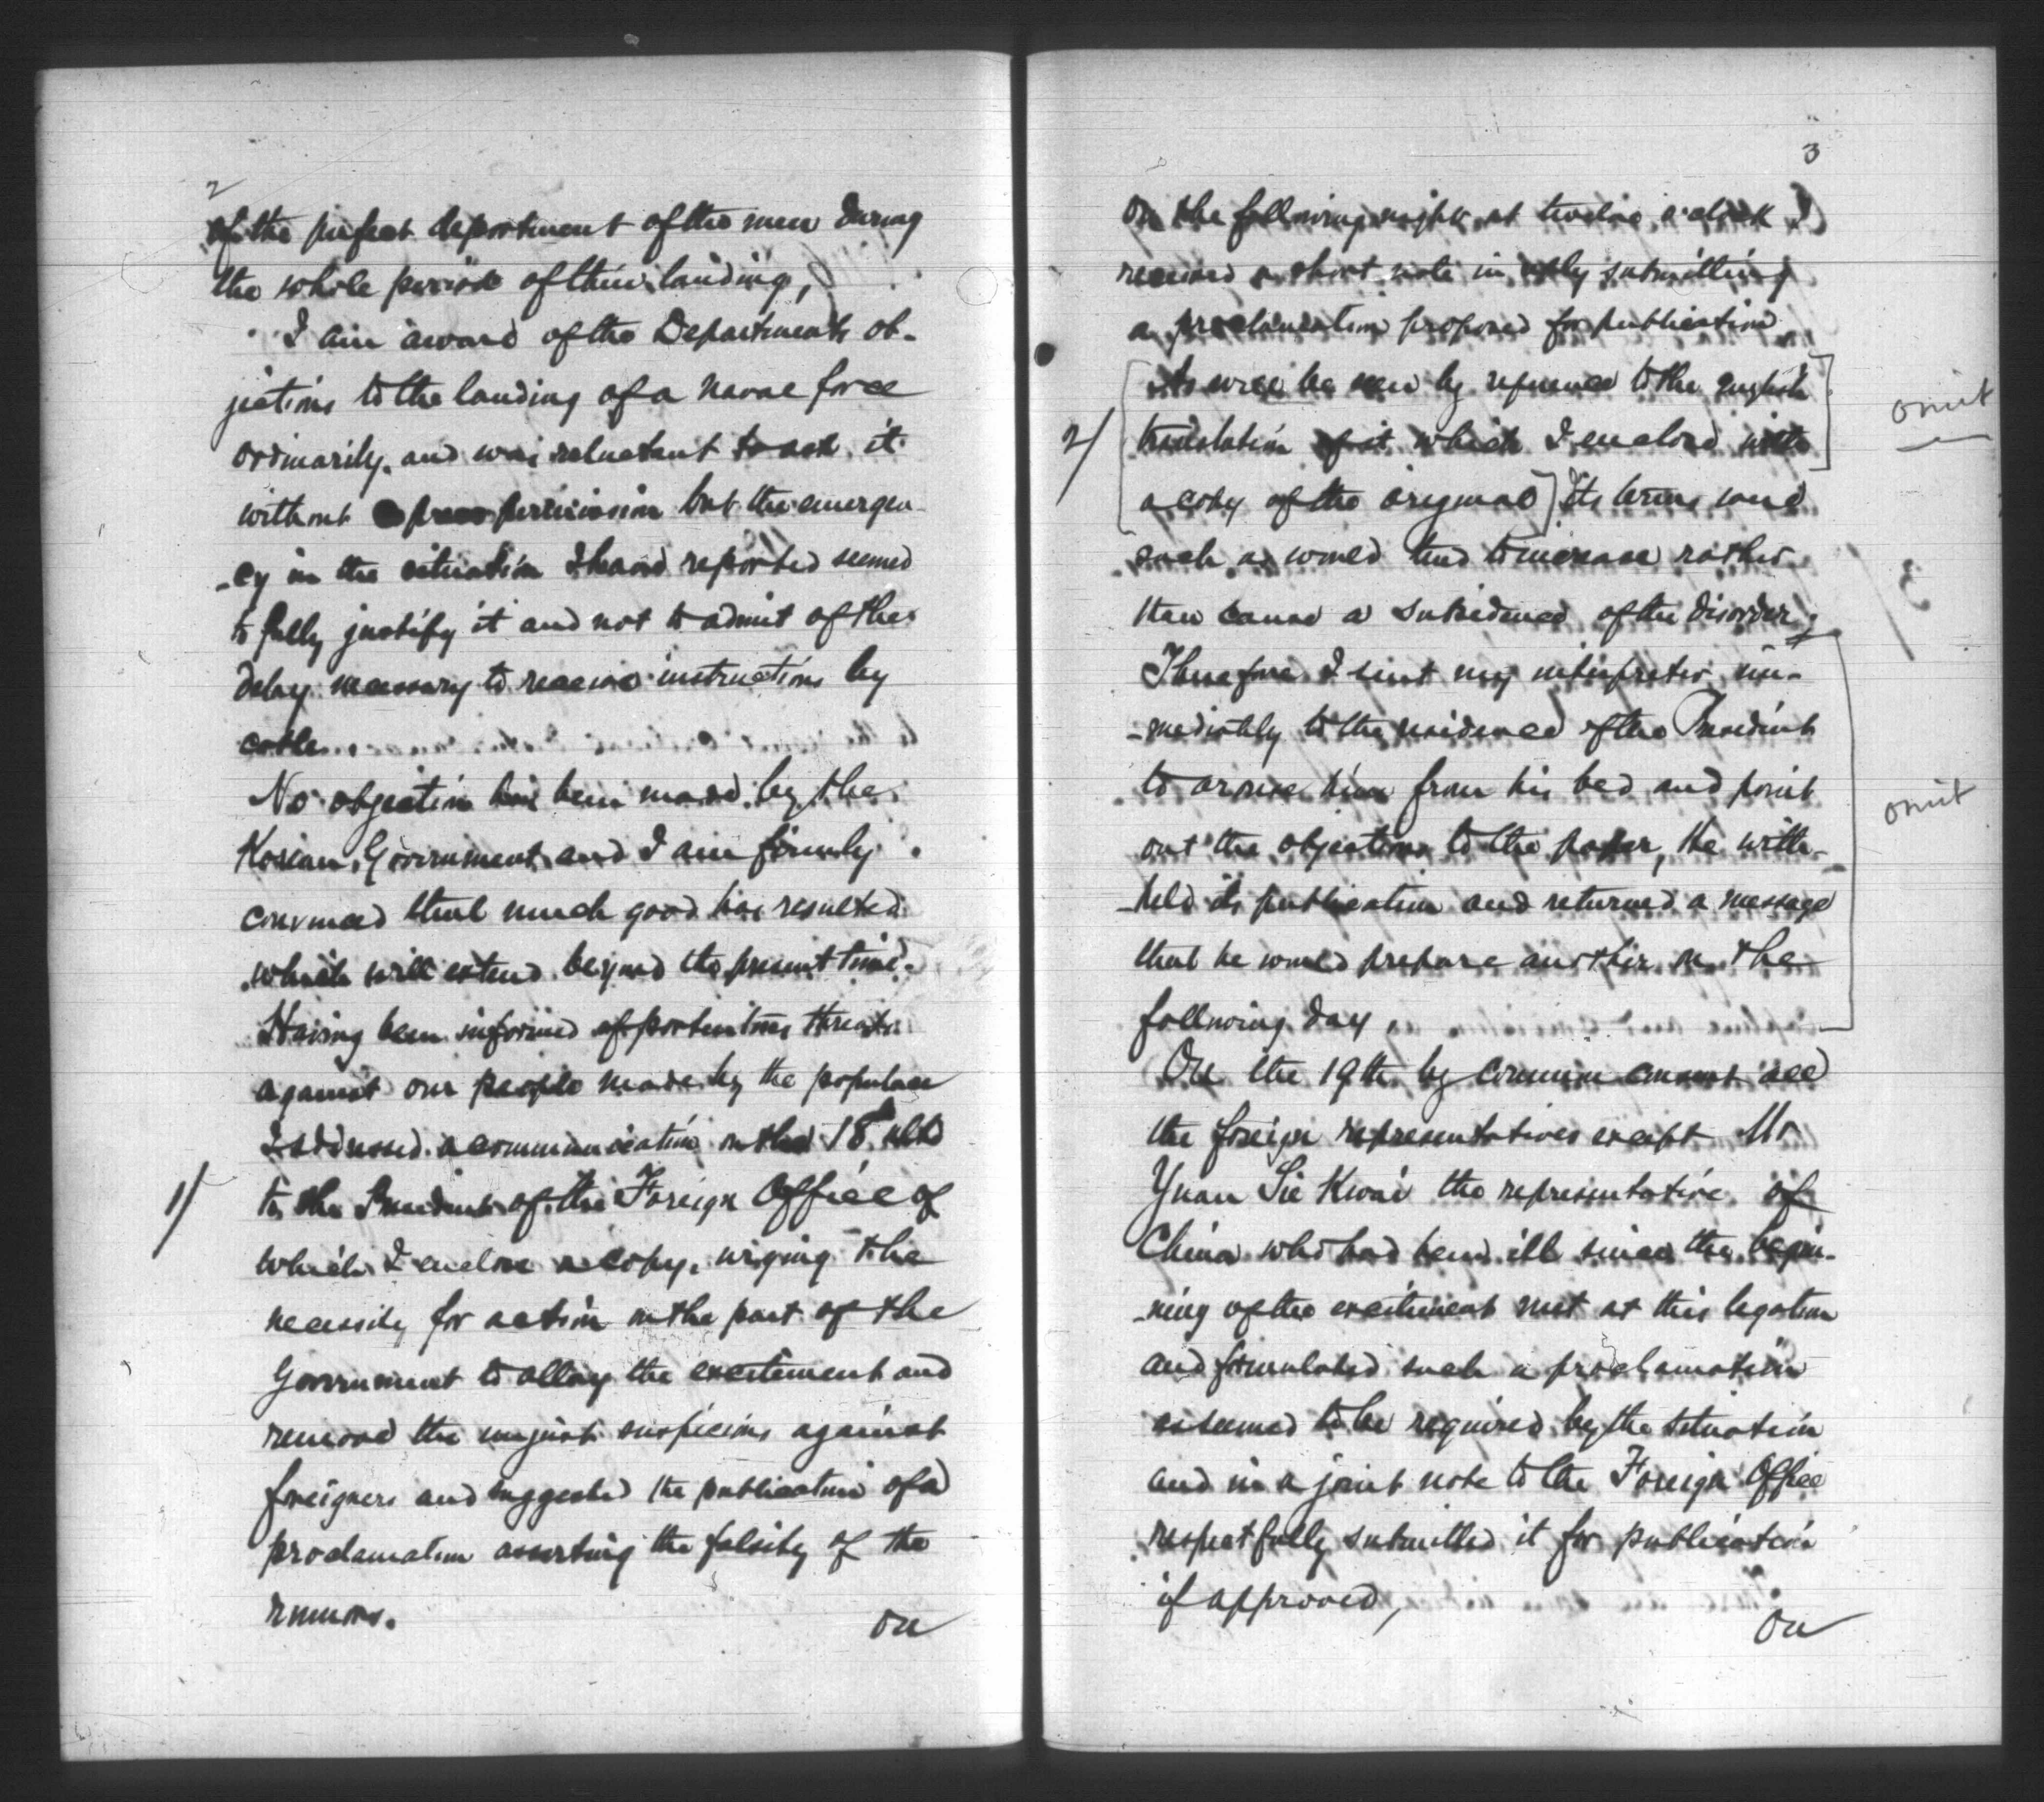 2
of the perfect deportment of the men during
the whole period of their landing,
I am aware of the Departments ob-
jections to the landing of a naval force
ordinarily, and was reluctant to ask it
without permission but the emergen-
-cy in the situation I have reported seemed
to fully justify it and not to admit of the
delay necessary to receive instructions by
cable.
No objection has been made by the
Korean Government and I am firmly
convinced that much good has resulted
which will extend beyond the present time.
Having been informed of portentous threats
against our people made by the populace
I addressed a communication on the 18 ulto
1/
to the President of the Foreign Office of
which I enclose a copy, urging the
necessity for action on the part of the
Government to allay the excitement and
remove the unjust suspicions against
foreigners and suggested the publication of a
proclamation asserting the falsity of the
rumors.
on
3
On the following night at twelve o'clock I
received a short note in reply submitting
a proclamation proposed for publication
As will be seen by reference to the english
omit
2/
translation of it which I enclose with
a copy of the original] Its terms were
such as would tend to increase rather
3/
than cause a subsidence of the disorder;
Therefore I sent my interpreter im-
-mediately to the residence of the President
to arouse him from his bed and point
omit
out the objections to the paper, He with-
-held its publication and returned a message
that he would prepare another on the
following day.
On the 19th by common consent all
the foreign representatives except Mr
Yuan Sie Kwai the representative of
China who had been ill since the begin-
-ning of the excitement met at this legation
and formulated such a proclamation
as seemed to be required by the situation
and in a joint note to the Foreign Office
respectfully submitted it for publication
if approved,
On